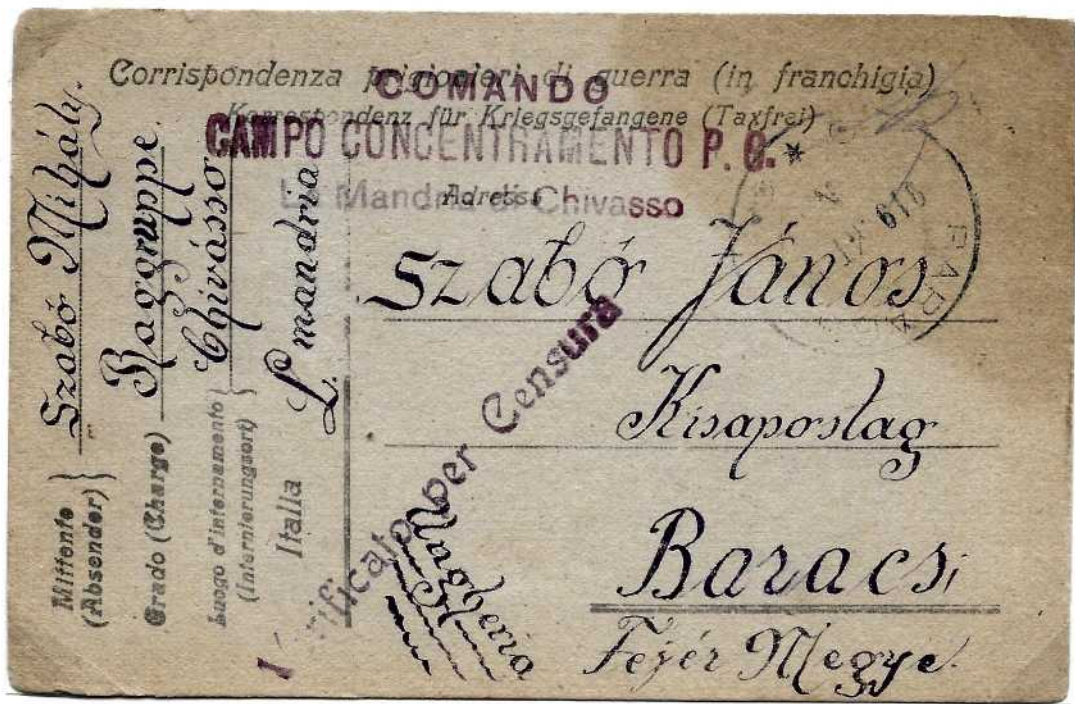 Corrispondenza prigionieri di guerra (in franchigia)
COMANDO
Korrespondenz für Kriegsgefangene (Taxfrei)
CAMPO CONCENTRAMENTO P. G. *
Adresse
La Mandria di Chivasso
Szabó János
Kisapostag
Baracsi
Fejér Megye.
Verificato per Censura
Mittente (Absender) } Szabó Mihály.
Grado (Charge) Raggruppe
Luogo d'internamento (Internierungsort) } Chivásso
Italia L. mandria